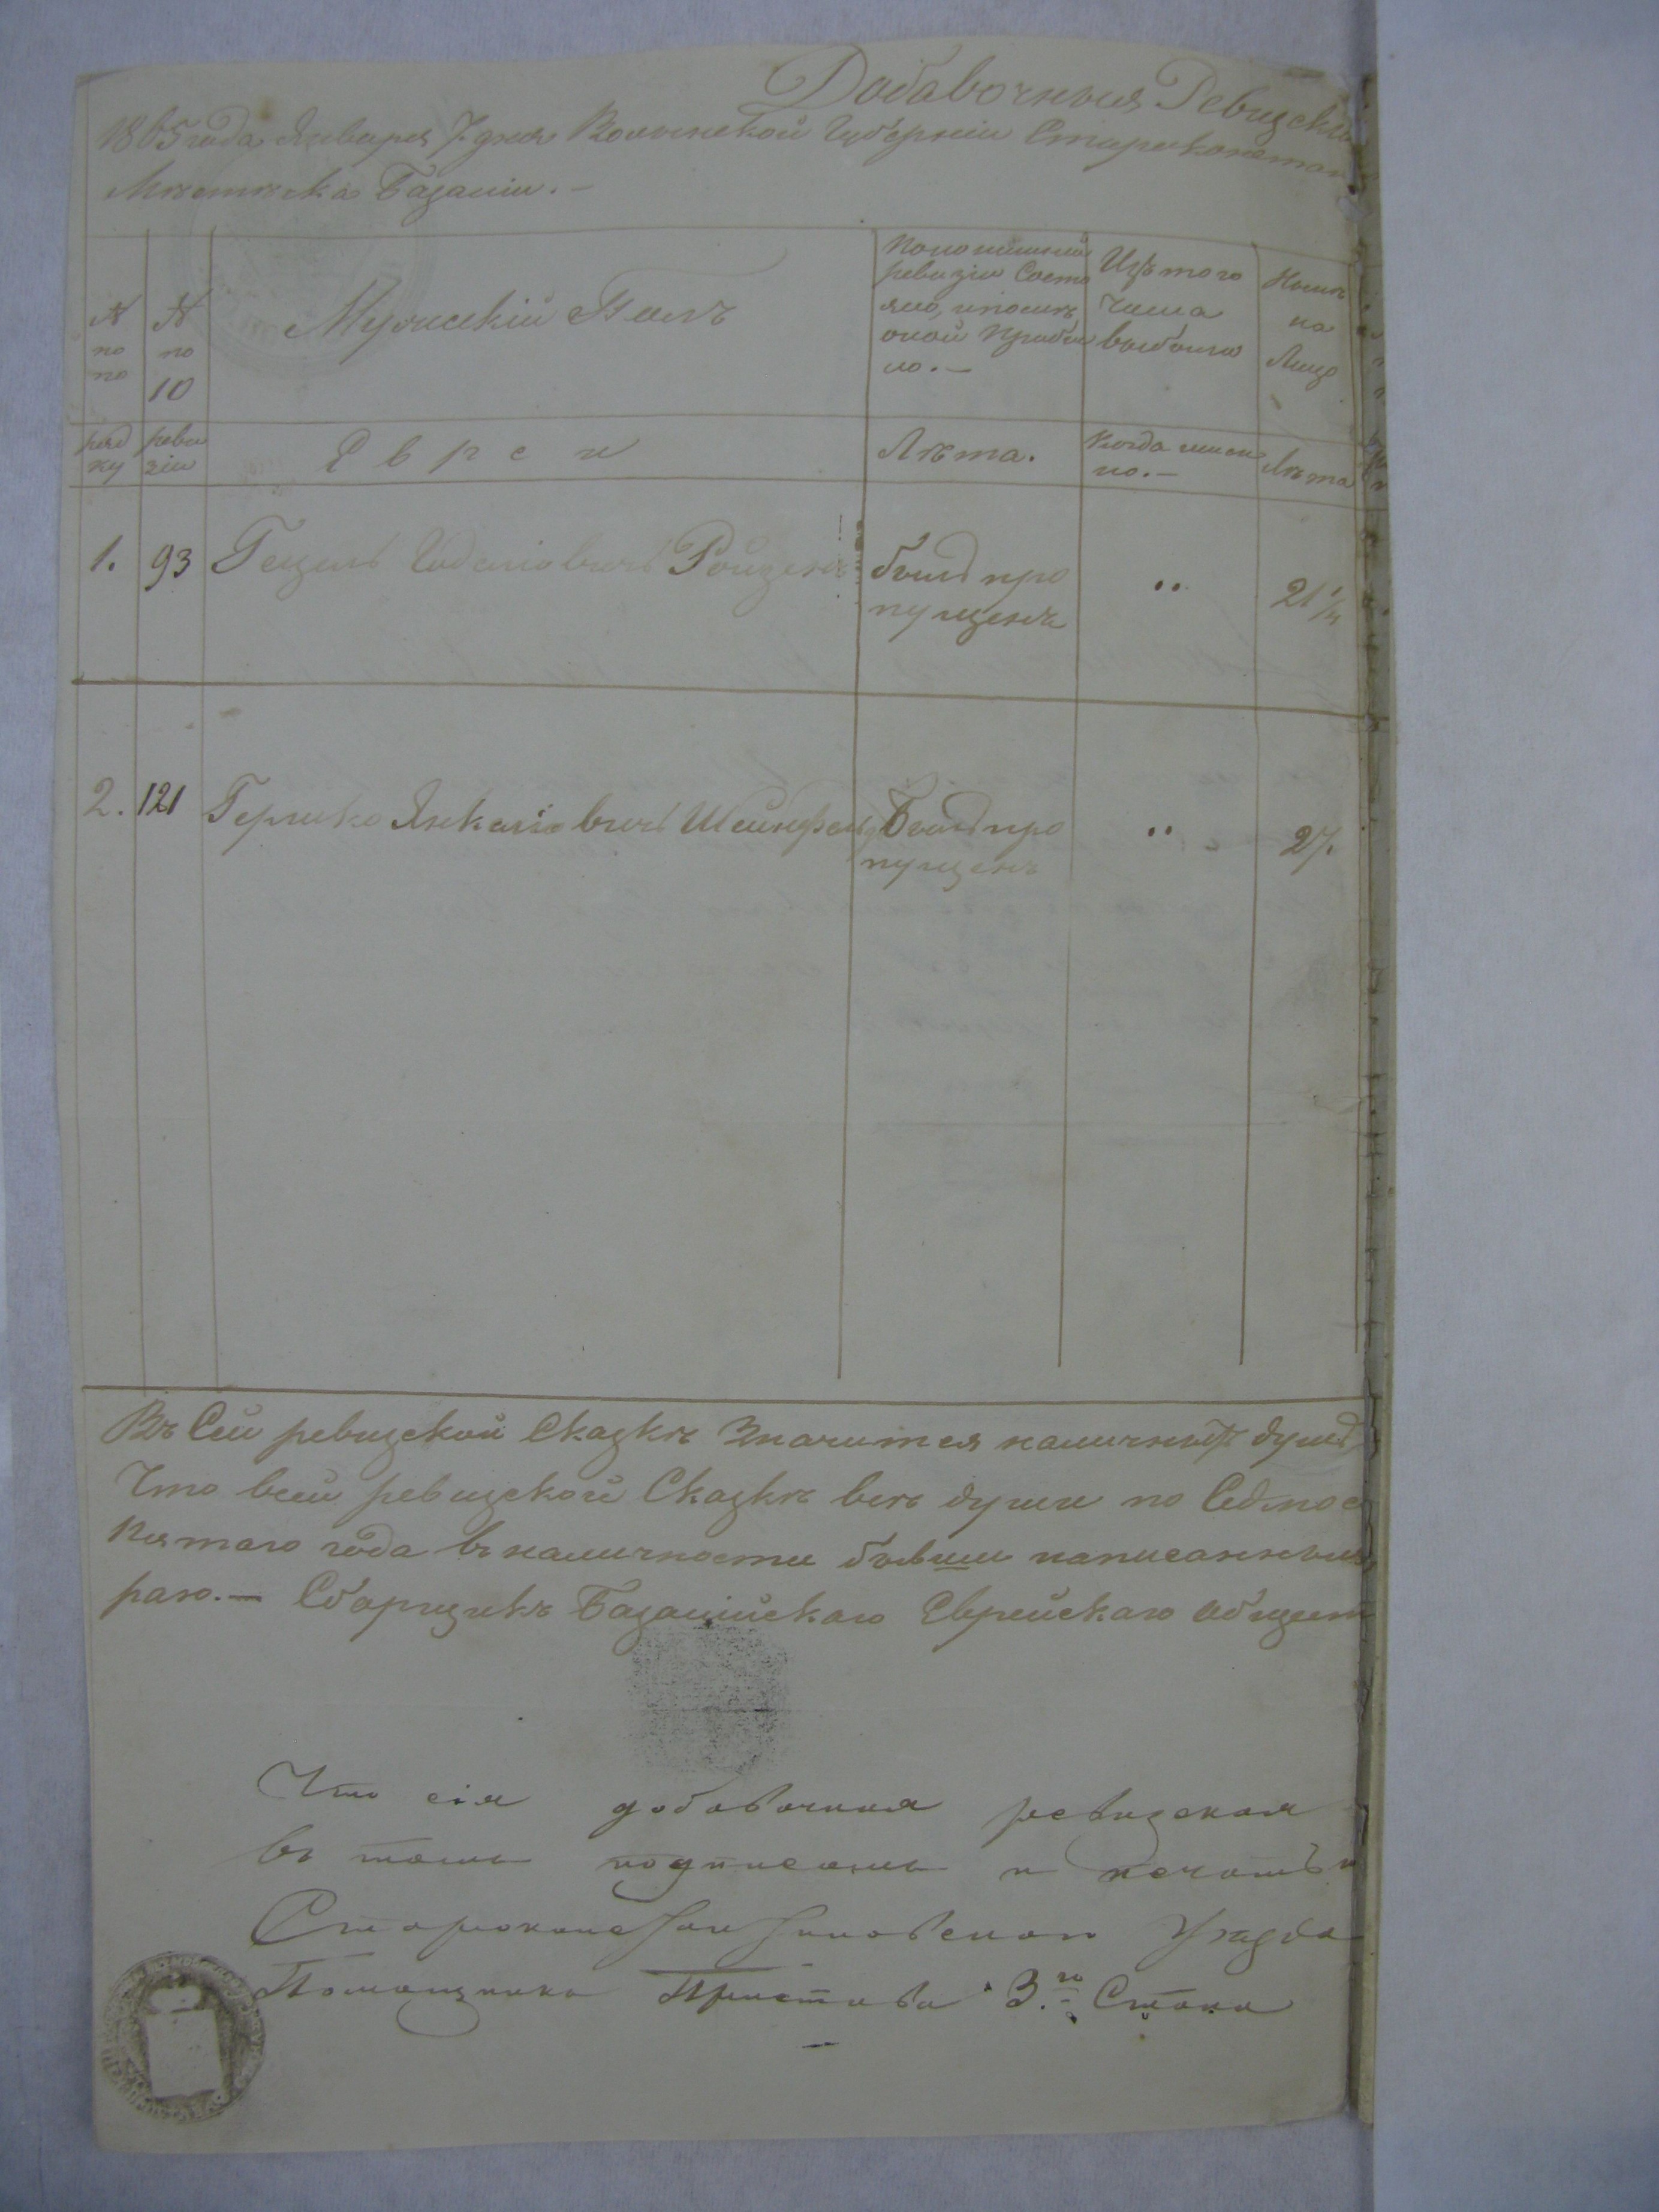 Добавочныя Ревизскія
1865 года Января 7 дня Волынской Губерніи Староконстан
Мѣстечка Базаліи. —
№ по по
№ по 10
Мужескій Полъ
По послѣдней
ревизіи Состо
яло, и послѣ
оной прибы
ло. —
Изъ того
числа
выбыло
Нынѣ
на
Лицо
ряд
ку
реви
зіи
Евреи
Лѣта.
Когда имен
но. —
Лѣта
1. 93 Гецель Іоделіовичъ Ройзенъ былъ про
пущенъ „ 21 1/4
2. 121 Гершко Янкеліовичъ Шейнфельд Былъ про
пущенъ „ 27.
Въ Сей ревизской Сказкѣ Значится наличныхъ душъ
Что въ сей ревизской Сказкѣ всѣ души по Седмое
Пятаго года въ наличности бывши написанными
раго. — Сборщикъ Базалійскаго Еврейскаго Общест
Что сія добавочная ревизская
въ томъ подписомъ и печатью
Староконстантиновскаго Уѣзда
Помощника Пристава 3.го Стана